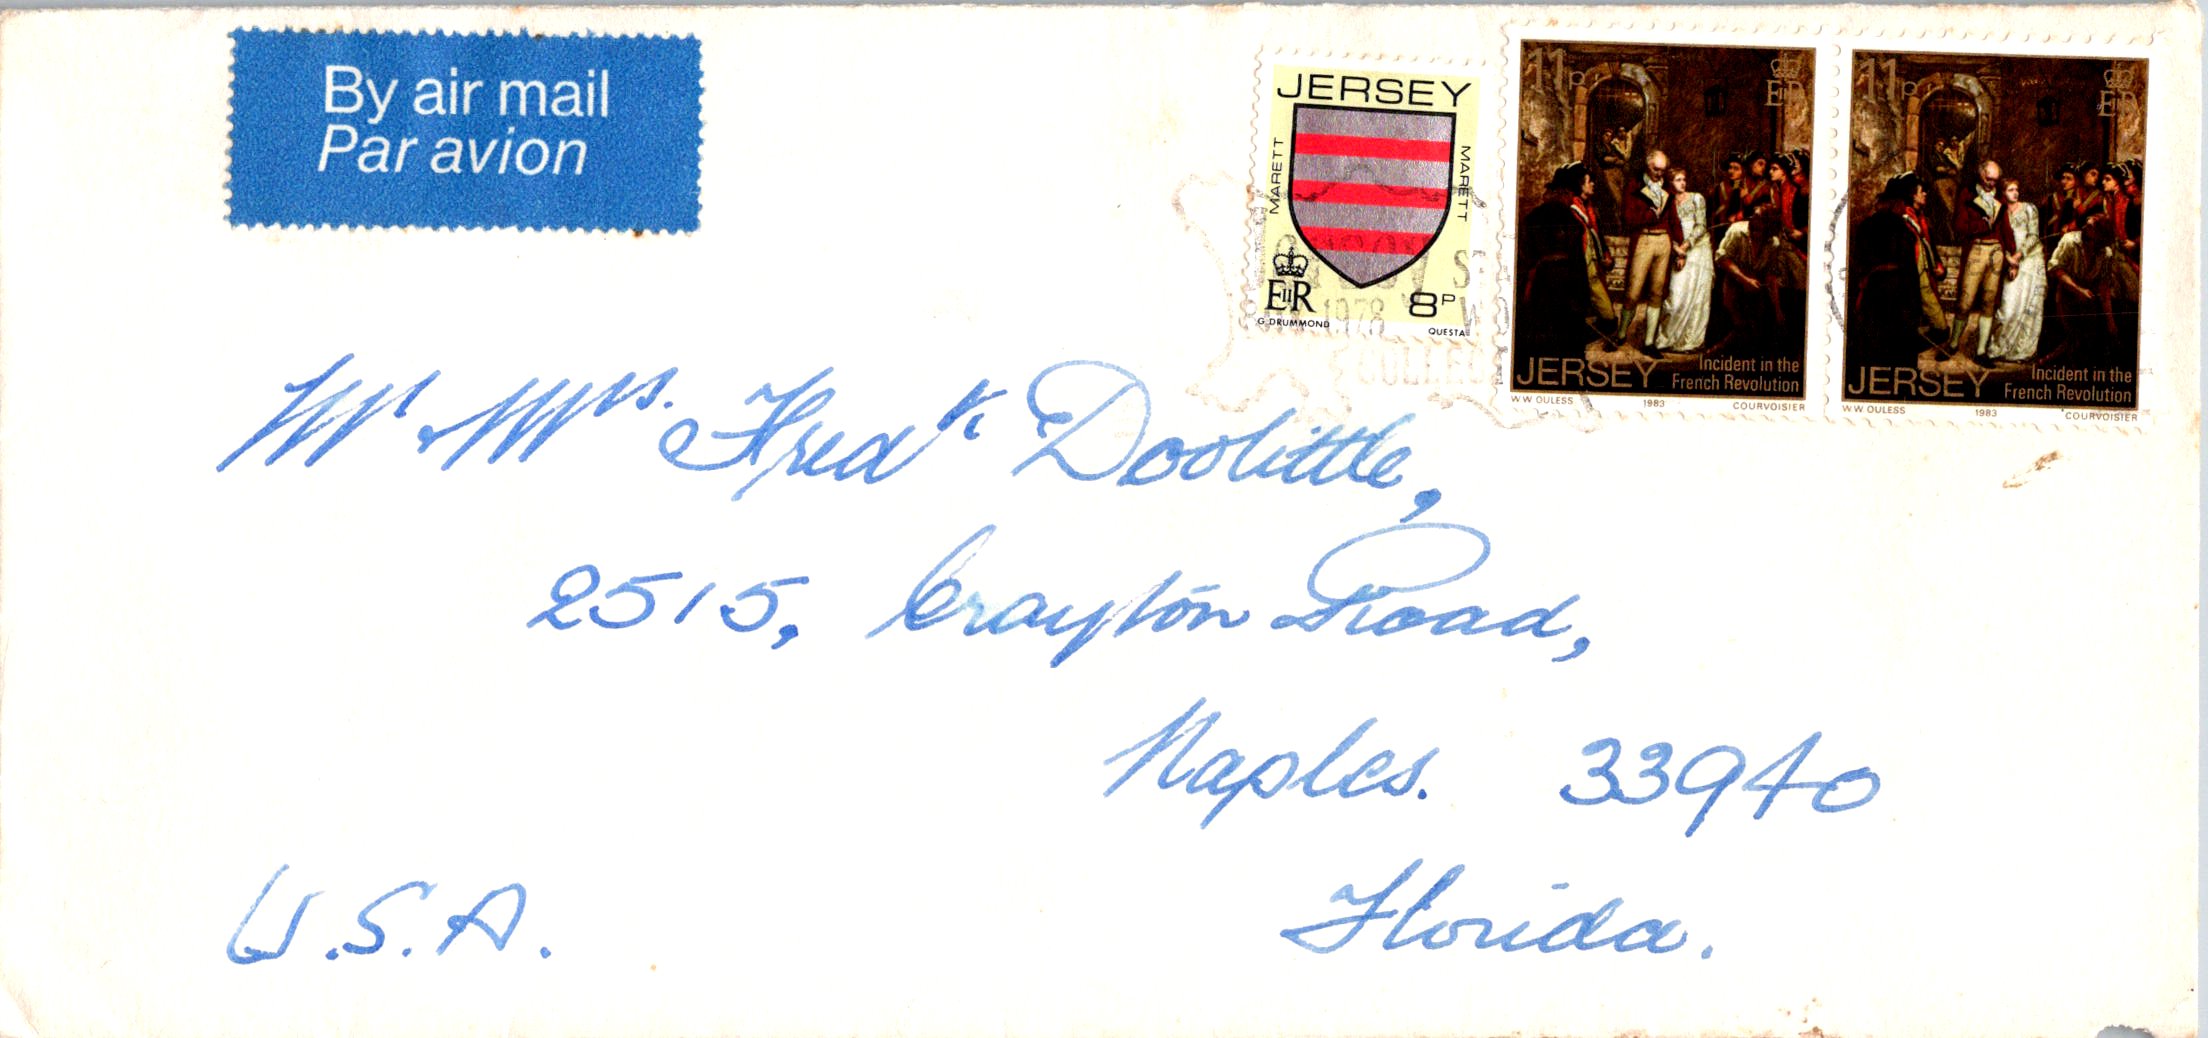 By air mail
Par avion
JERSEY
MARETT
MARETT
EIIR
8P
G DRUMMOND
QUESTA
1978
11p
EIIR
JERSEY
Incident in the
French Revolution
W W OULESS
1983
COURVOISIER
11p
EIIR
JERSEY
Incident in the
French Revolution
W W OULESS
1983
COURVOISIER
Mr & Mrs. Fredk Doolittle,
2515, Crayton Road,
Naples. 33940
Florida.
U.S.A.